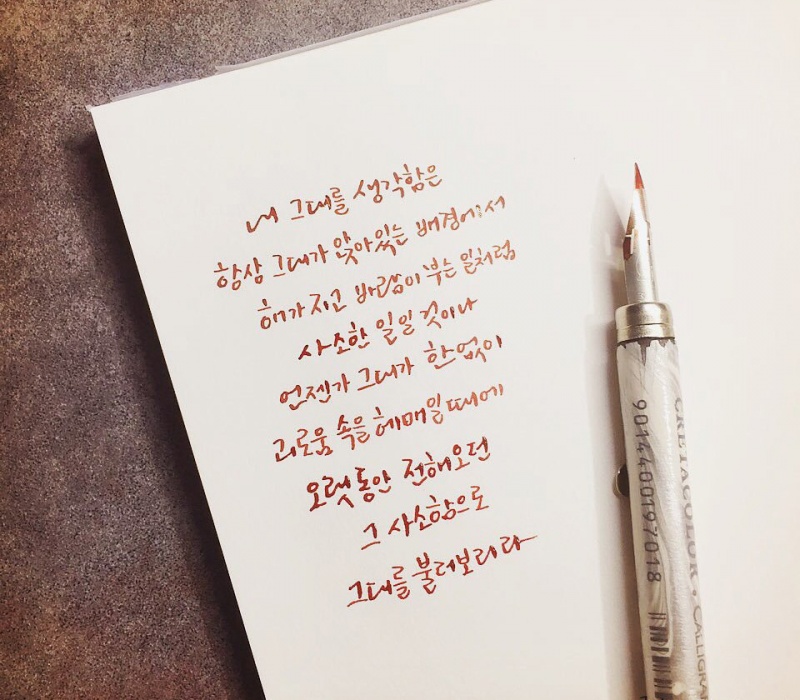 내 그대를 생각함은
항상 그대가 앉아있는 배경에서
해가 지고 바람이 부는 일처럼
사소한 일일 것이나
언젠가 그대가 한없이
괴로움 속을 헤매일 때에
오랫동안 전해오던
그 사소함으로
그대를 불러보리라
CRETACOLOR . CALLIGRA
9014400197018